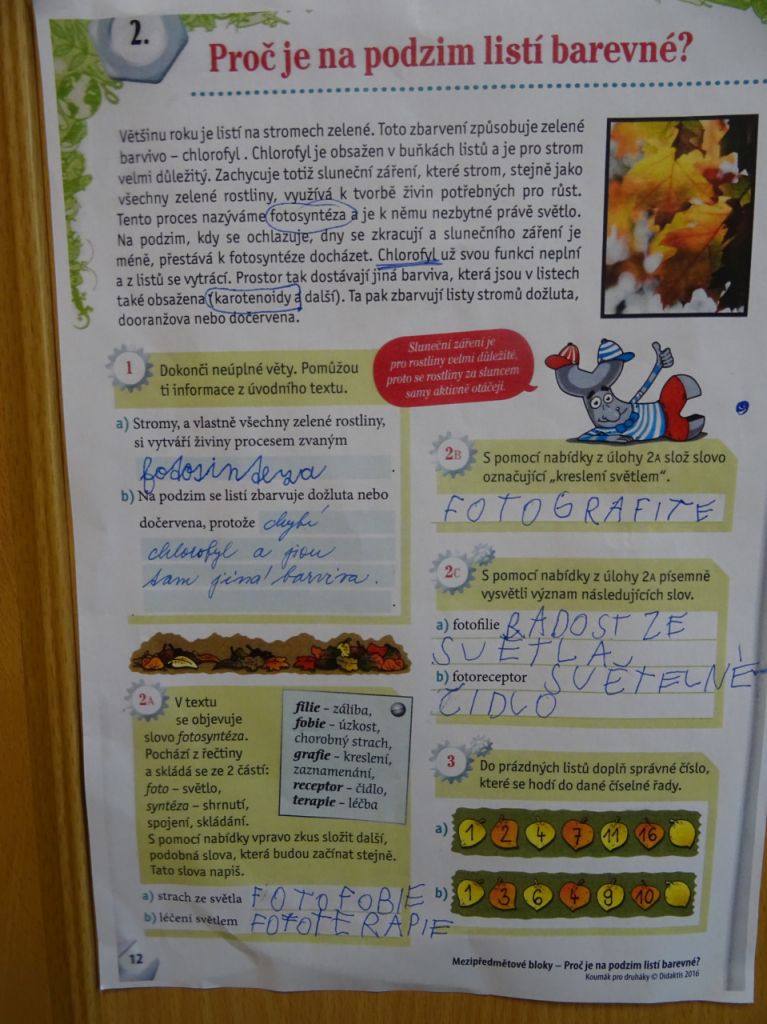 2.
Proč je na podzim listí barevné?
Většinu roku je listí na stromech zelené. Toto zbarvení způsobuje zelené
barvivo – chlorofyl . Chlorofyl je obsažen v buňkách listů a je pro strom
velmi důležitý. Zachycuje totiž sluneční záření, které strom, stejně jako
všechny zelené rostliny, využívá k tvorbě živin potřebných pro růst.
Tento proces nazýváme fotosyntéza a je k němu nezbytné právě světlo.
Na podzim, kdy se ochlazuje, dny se zkracují a slunečního záření je
méně, přestává k fotosyntéze docházet. Chlorofyl už svou funkci neplní
a z listů se vytrácí. Prostor tak dostávají jiná barviva, která jsou v listech
také obsažena (karotenoidy a další). Ta pak zbarvují listy stromů dožluta,
dooranžova nebo dočervena.
1
Dokonči neúplné věty. Pomůžou
ti informace z úvodního textu.
Sluneční záření je
pro rostliny velmi důležité,
proto se rostliny za sluncem
samy aktivně otáčejí.
a) Stromy, a vlastně všechny zelené rostliny,
si vytváří živiny procesem zvaným
fotosinteza .
b) Na podzim se listí zbarvuje dožluta nebo
dočervena, protože chybí
chlorofyl a jsou
tam jiná barviva.
.
2A
V textu
se objevuje
slovo fotosyntéza.
Pochází z řečtiny
a skládá se ze 2 částí:
foto – světlo,
syntéza – shrnutí,
spojení, skládání.
S pomocí nabídky vpravo zkus složit další,
podobná slova, která budou začínat stejně.
Tato slova napiš.
filie – záliba,
fobie – úzkost,
chorobný strach,
grafie – kreslení,
zaznamenání,
receptor – čidlo,
terapie – léčba
a) strach ze světla FOTOFOBIE
b) léčení světlem FOTOTERAPIE
2B
S pomocí nabídky z úlohy 2A slož slovo
označující „kreslení světlem“.
FOTOGRAFITE
2C
S pomocí nabídky z úlohy 2A písemně
vysvětli význam následujících slov.
a) fotofilie RADOST ZE
SVĚTLA
b) fotoreceptor SVĚTELNÉ
ČIDLO
3
Do prázdných listů doplň správné číslo,
které se hodí do dané číselné řady.
a) 1 2 4 7 11 16
b) 1 3 6 4 9 10
12
Mezipředmětové bloky – Proč je na podzim listí barevné?
Koumák pro druháky © Didaktis 2016